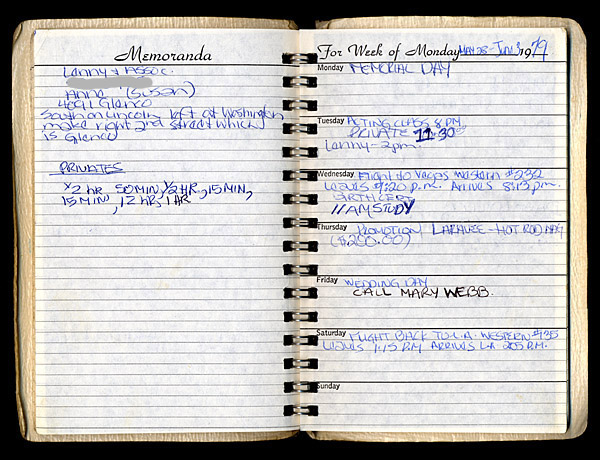 Memoranda
Lanny & Assoc.
Anna (Susan)
4091 Glenco
South on Lincoln left at Washington
make right 2nd street which
is Glenco
PRIVATES
1/2 HR 50 MIN, 1/2 HR, 15 MIN,
15 MIN, 1/2 HR, 1 HR
For Week of Monday MAY 28 - JUN 3 1979
Monday MEMORIAL DAY
Tuesday ACTING CLASS 8 PM
PRIVATE 11:30
Lanny - 2pm.
Wednesday Flight to Vegas Western #232
Leaves 7:20 p.m. Arrives 8:13 p.m.
BIRTH CERT
11 AM STUDY
Thursday PROMOTION - HOT ROD MAG
($200.00)
Friday WEDDING DAY
CALL MARY WEBB.
Saturday FLIGHT BACK TO L.A. WESTERN #435
Leaves 1:15 P.M ARRIVES LA 2:05 P.M.
Sunday